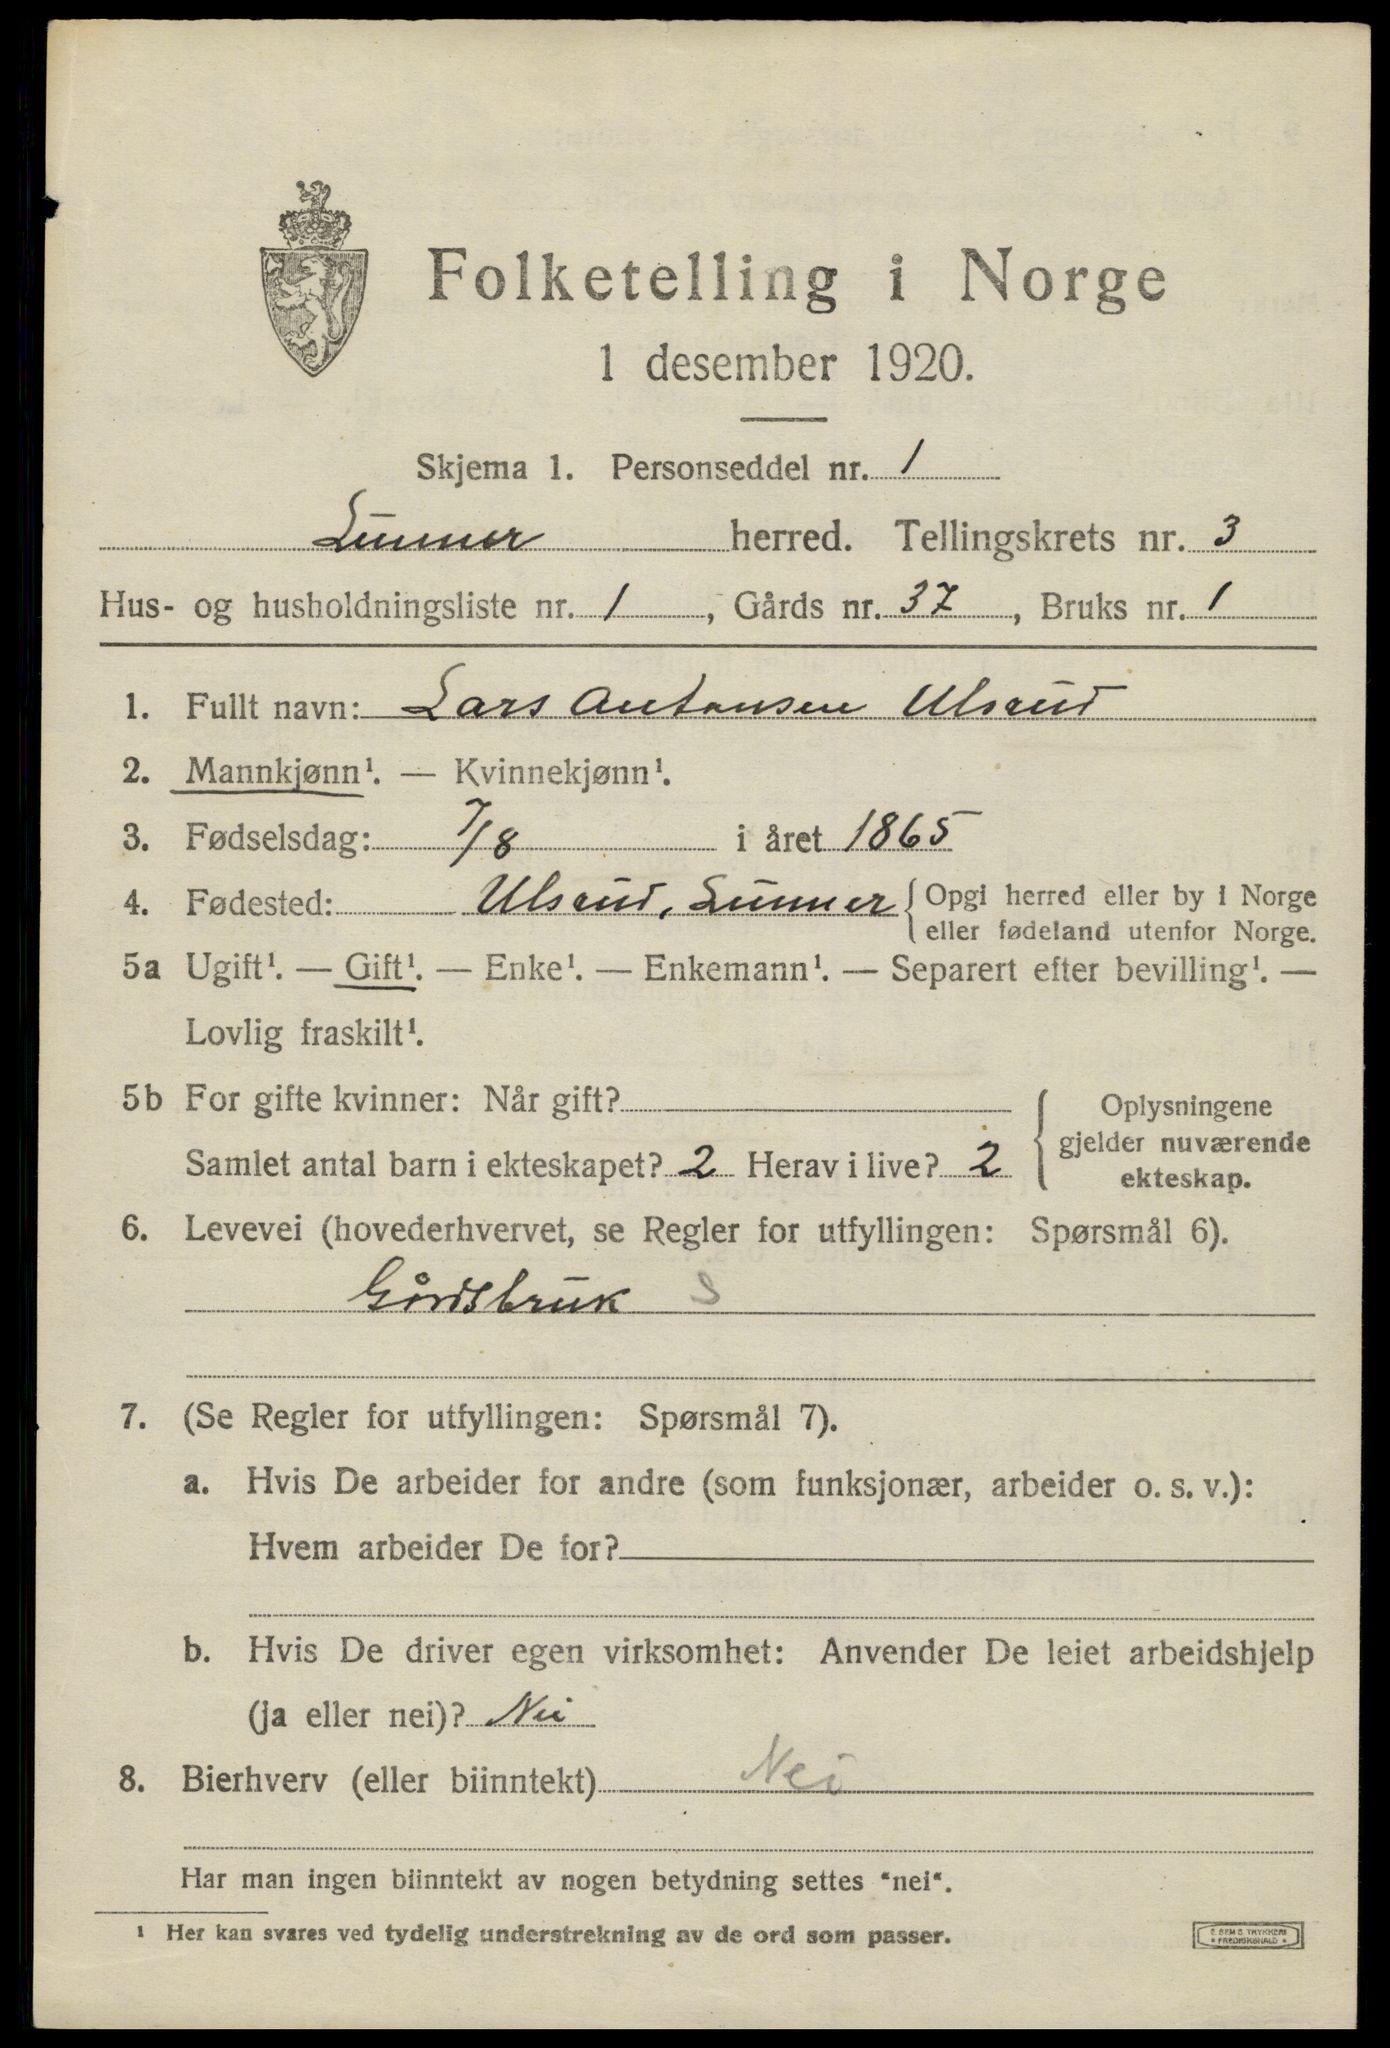 Folketelling i Norge
1 desember 1920.
Skjema 1. Personseddel nr. 1
Lunner herred. Tellingskrets nr. 3
Hus- og husholdningsliste nr. 1, Gårds nr. 37, Bruks nr. 1
1. Fullt navn: Lars Antonsen Ulsrud
2. Mannkjønn¹. — Kvinnekjønn¹.
3. Fødselsdag: 7/8 i året 1865
4. Fødested: Ulsrud, Lunner { Opgi herred eller by i Norge
eller fødeland utenfor Norge.
5a Ugift¹. — Gift¹. — Enke¹. — Enkemann¹. — Separert efter bevilling¹. —
Lovlig fraskilt¹.
5b For gifte kvinner: Når gift?
Samlet antal barn i ekteskapet? 2 Herav i live? 2
Oplysningene
gjelder nuværende
ekteskap.
6. Levevei (hovederhvervet, se Regler for utfyllingen: Spørsmål 6).
Gårdsbruk S
7. (Se Regler for utfyllingen: Spørsmål 7).
a. Hvis De arbeider for andre (som funksjonær, arbeider o. s. v.):
Hvem arbeider De for?
b. Hvis De driver egen virksomhet: Anvender De leiet arbeidshjelp
(ja eller nei)? Nei
8. Bierhverv (eller biinntekt) Nei
Har man ingen biinntekt av nogen betydning settes "nei".
¹ Her kan svares ved tydelig understrekning av de ord som passer.
E SEMS TRYKKERI
FREDRIKSHALD